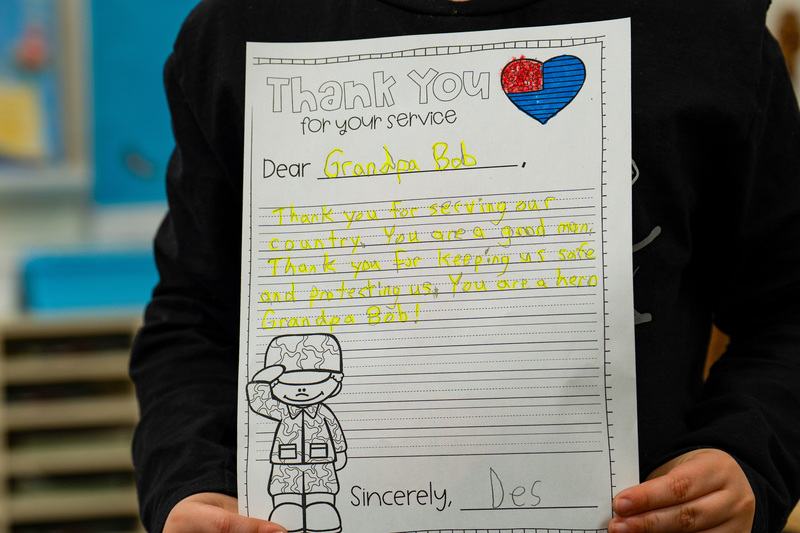 Thank You
for your service
Dear Grandpa Bob,
Thank you for serving our
country. You are a good man.
Thank you for keeping us safe
and protecting us. You are a hero
Grandpa Bob!
Sincerely, Des